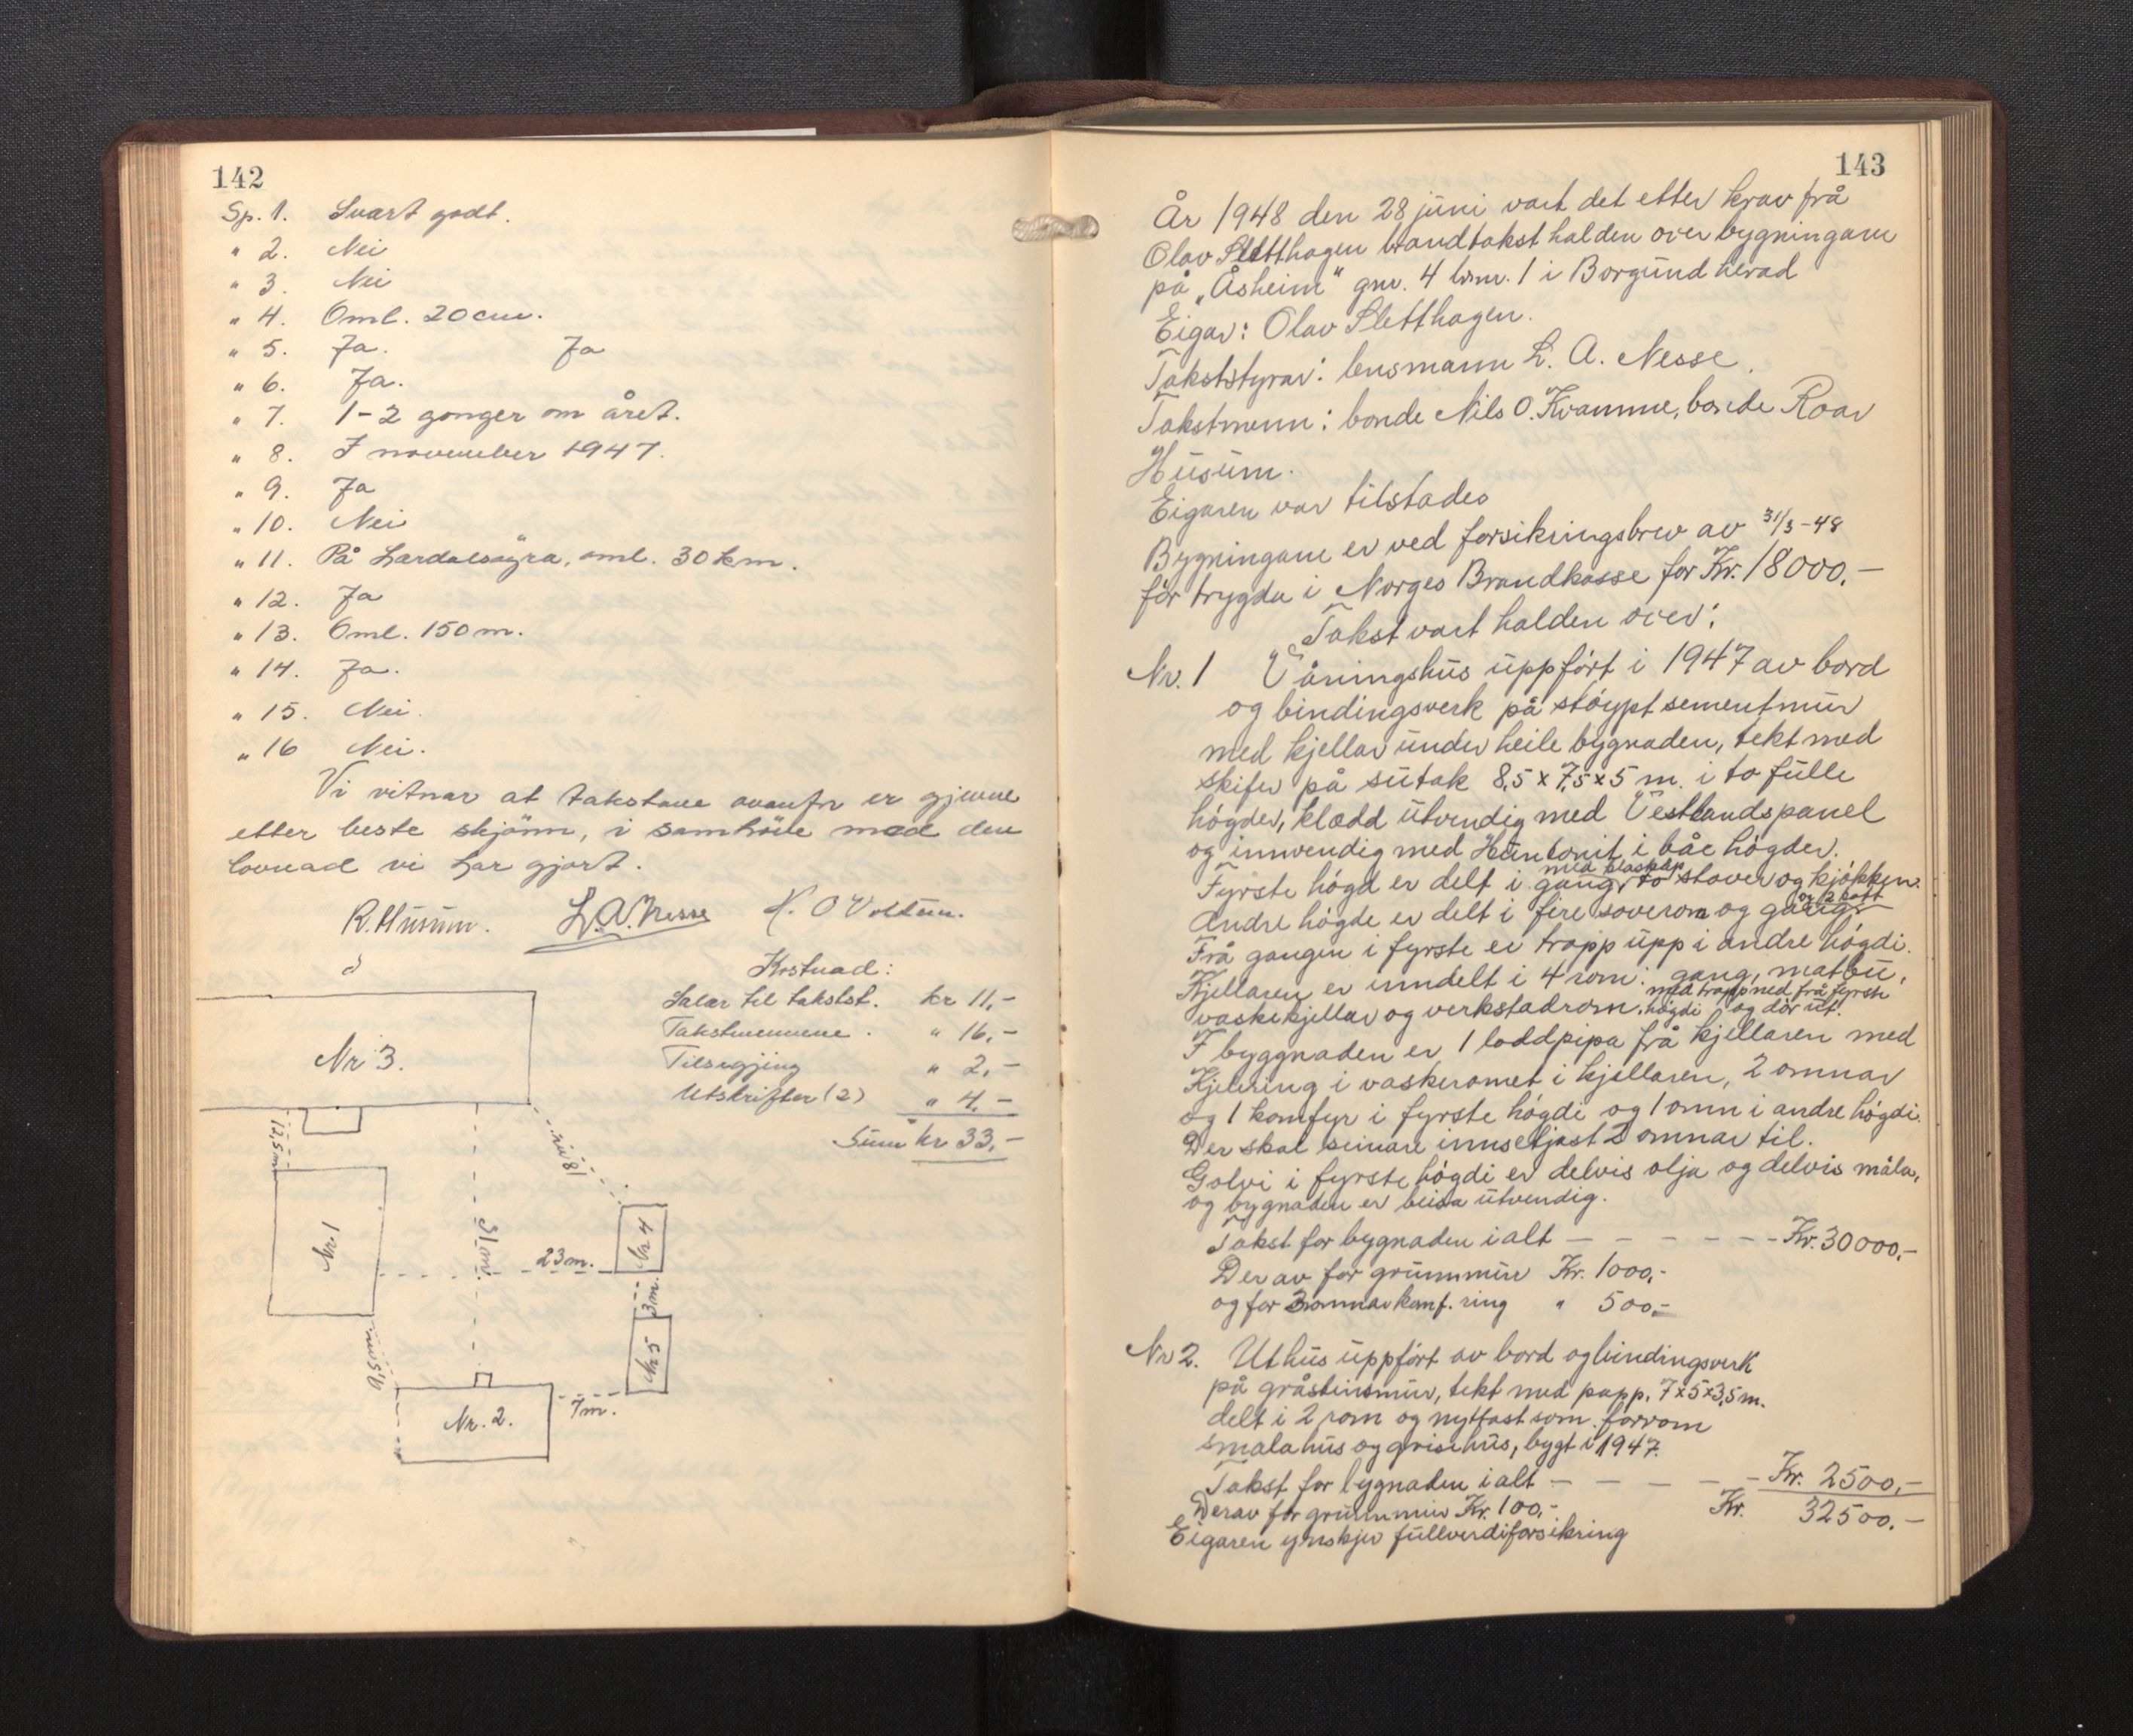 142
Sp. 1. Svært godt.
" 2. Nei
" 3. Nei
" 4. Oml. 20 cm.
" 5. Ja. Ja
" 6. Ja.
" 7. 1-2 gonger om året.
" 8. I november 1947.
" 9. Ja
" 10. Nei
" 11. På Lærdalsøyra, oml. 30 km.
" 12. Ja
" 13. Oml. 150 m.
" 14. Ja.
" 15. Nei.
" 16 Nei.
Vi vitnar at takstane ovanfor er gjevne
etter beste skjønn, i samhøve med den
lovnad vi har gjort.
R. Husum. L. A. Nesse O Voldum.
Kostnad:
Salær til takstst. kr 11,-
Takstmennene. " 16,-
Tilsegjing " 2,-
Utskrifter (2) " 4,-
Sum kr 33,-
Nr 3.
12,5 m
18 m.
Nr 1
31 m
23 m.
Nr 4
3 m.
Nr 5
9,5 m.
Nr. 2.
7 m.
143
År 1948 den 28 juni vart det etter krav frå
Olav Sletthagen brandtakst halden over bygningane
på „Åsheim" gnr. 4 brnr. 1 i Borgund herad
Eigar: Olav Sletthagen.
Takststyrar: lensmann L. A. Nesse.
Takstmenn: bonde Nils O. Kvamme, bonde Roar
Husum.
Eigaren var tilstades
Bygningane er ved forsikringsbrev av 31/3-48
før trygda i Norges Brandkasse for Kr. 18000.-
Takst vart halden over:
Nr. 1 Våningshus uppført i 1947 av bord
og bindingsverk på støypt sementmur
med kjellar under heile bygnaden, tekt med
skifer på sutak 8,5 x 7,5 x 5 m. i to fulle
høgder, klædd utvendig med Vestlandspanel
og innvendig med Huntonit i båe høgder.
med klæskap
Fyrste høgd er delt i gang, to stover og kjøkken.
og 2 kott
Andre høgde er delt i fire soverom og gang
Frå gangen i fyrste er trapp upp i andre høgdi.
Kjellaren er inndelt i 4 rom: gang, matbu,
med trapp ned frå fyrste
vaskekjellar og verkstadrom. høgdi og dør ut.
I byggnaden er 1 loddpipa frå kjellaren med
Kjelering i vaskeromet i kjellaren, 2 omnar
og 1 komfyr i fyrste høgdi og 1 omn i andre høgdi.
Der skal seinare innsetjast 2 omnar til.
Golvi i fyrste høgdi er delvis olja og delvis måla,
og bygnaden er beisa utvendig.
Takst for bygnaden ialt - - - - - - Kr. 30000,-
Derav for grunnmur Kr. 1000,-
og for 3 omnar komf. ring " 500,-
Nr 2. Uthus uppført av bord og bindingsverk
på gråsteinsmur, tekt med papp. 7 x 5 x 3,5 m.
delt i 2 rom og nyttast som forrom
smalahus og grisehus, bygt i 1947.
Takst for bygnaden ialt - - - - - Kr. 2500,-
Derav for grunnmur Kr. 100,- Kr. 32500.-
Eigaren ynskjer fullverdiforsikring